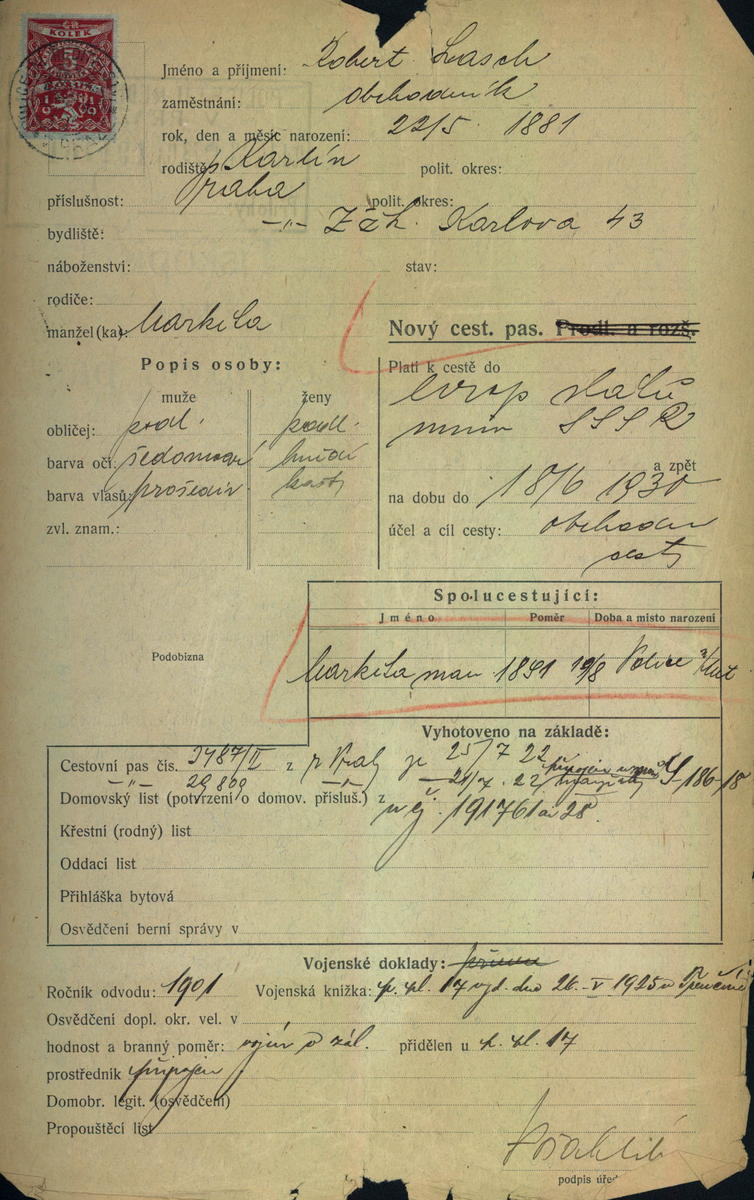 KOLEK
5
Jméno a příjmení: Robert Lasch
zaměstnání: obchodník
rok, den a měsíc narození: 22/5 1881
rodiště: Karlín polit. okres:
příslušnost: Praha polit. okres:
bydliště: -"- Žčh. Karlova 43
náboženství: stav:
rodiče:
manžel(ka): Markéta
Nový cest. pas. Prodl. a rozš.
Popis osoby:
muže ženy
obličej: podl. podl.
barva očí: šedomodré hnědé
barva vlasů: prošediv.
zvl. znam.:
Platí k cestě do
evrop států
mimo SSSR
a zpět
na dobu do 18/6 1930
účel a cíl cesty: obchodní
cesty
Spolucestující:
Jméno Poměr Doba a místo narození
Markéta man. 1891 19/8
Podobizna
Vyhotoveno na základě:
Cestovní pas čís. 3487/II z ze 25/7 22
-"- 29809 -"- 21/7 22 S 186-18
Domovský list (potvrzení o domov. přísluš.) z
čj. 191761 28
Křestní (rodný) list
Oddací list
Přihláška bytová
Osvědčení berní správy v
Vojenské doklady:
Ročník odvodu: 1901 Vojenská knížka: p. pl. 17 vyd. dne 26. V 1925 v Trenčíně
Osvědčení dopl. okr. vel. v
hodnost a branný poměr: vojín v zál. přidělen u p. pl. 17
prostředník připojen
Domobr. legit. (osvědčení)
Propouštěcí list
podpis úřed